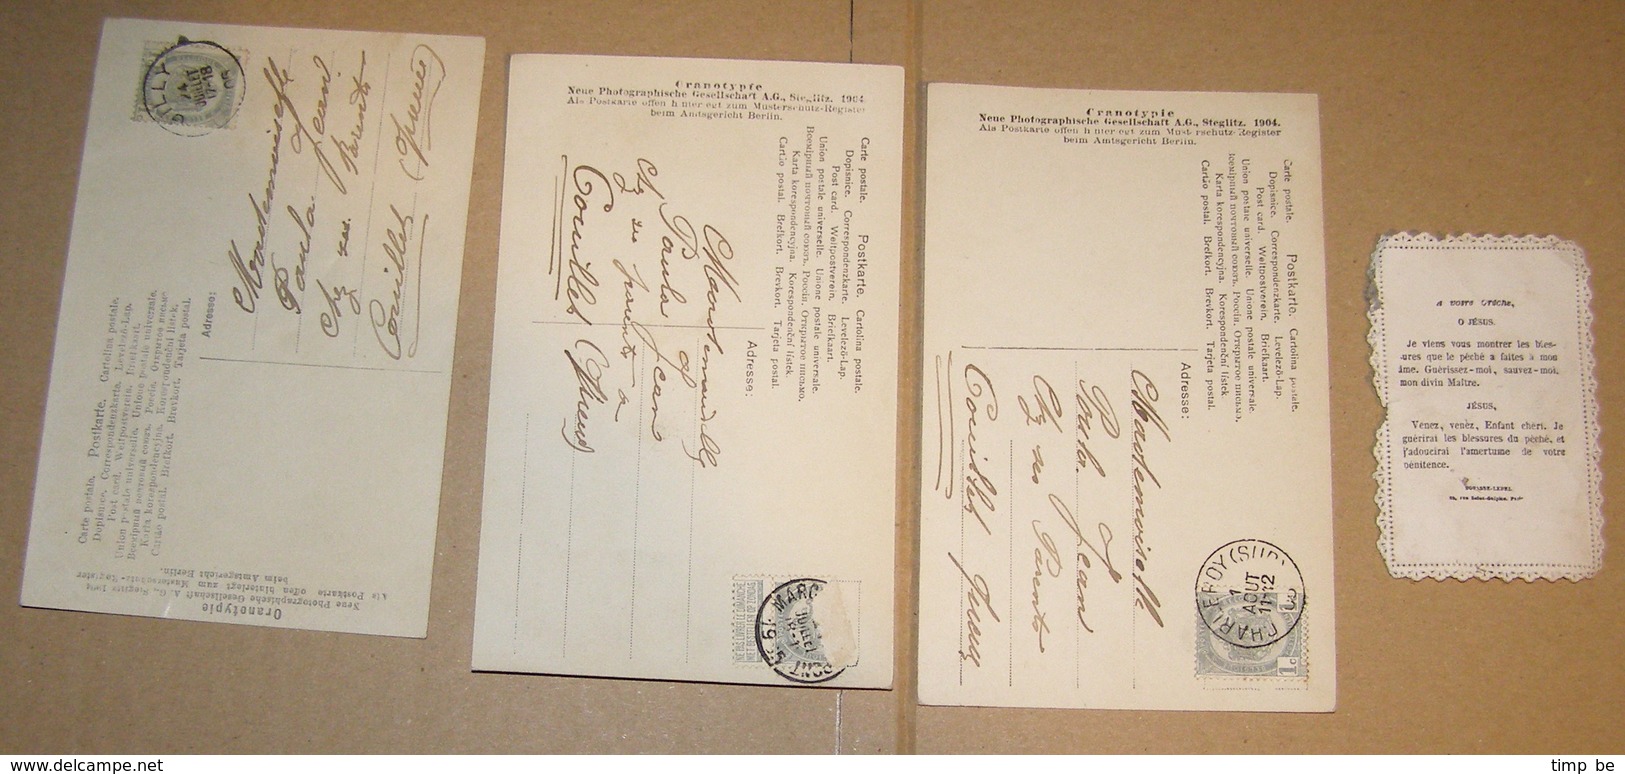 GILLY
24
JUILLET
17-18
Mademoiselle
Paula Jean
Chez ses Parents
Couillet (Queue)
Adresse:
Carte postale. Postkarte. Cartolina postale.
Dopisnice. Correspondenzkarte. Levelező-Lap.
Post card. Weltpostverein. Briefkaart.
Union postale universelle. Unione postale universale.
Всемірный почтовый союзъ. Россія. Открытое письмо.
Karta korespondencyjna. Korespondenční lístek.
Cartão postal. Brefkort. Brevkort. Tarjeta postal.
Cranotypie
Neue Photographische Gesellschaft A.G., Steglitz 1904
Als Postkarte offen hinterlegt zum Musterschutz-Register
beim Amtsgericht Berlin.
Cranotypie
Neue Photographische Gesellschaft A.G., Steglitz. 1904
Als Postkarte offen h nter egt zum Musterschutz-Register
beim Amtsgericht Berlin.
Carte postale. Postkarte. Cartolina postale.
Dopisnice. Correspondenzkarte. Levelező-Lap.
Post card. Weltpostverein. Briefkaart.
Union postale universelle. Unione postale universale.
Всемірный почтовый союзъ. Россія. Открытое письмо.
Karta korespondencyjna. Korespondenční lístek.
Cartão postal. Brefkort. Brevkort. Tarjeta postal.
Adresse:
Paula Jean
Couillet
MARC
JUILLET
PONT
NE PAS LIVRER LE DIMANCHE
NIET BESTELLEN OP ZONDAG
Cranotypie
Neue Photographische Gesellschaft A.G., Steglitz. 1904.
Als Postkarte offen h nter egt zum Must rschutz-Register
beim Amtsgericht Berlin.
Carte postale. Postkarte. Cartolina postale.
Dopisnice. Correspondenzkarte. Levelező-Lap.
Post card. Weltpostverein. Briefkaart.
Union postale universelle. Unione postale universale.
Всемірный почтовый союзъ. Россія. Открытое письмо.
Karta korespondencyjna. Korespondenční lístek.
Cartão postal. Brefkort. Brevkort. Tarjeta postal.
Adresse:
Mademoiselle
Paula Jean
Chez ses Parents
Couillet Queue
CHARLEROY (SUD)
1
AOUT
11-12
1c
A votre Crèche,
O JÉSUS.
Je viens vous montrer les bles-
sures que le péché a faites à mon
âme. Guérissez-moi, sauvez-moi,
mon divin Maître.
JÉSUS,
Venez, venez, Enfant chéri. Je
guérirai les blessures du péché, et
j'adoucirai l'amertume de votre
pénitence.
BOUASSE-LEBEL
29, rue Saint-Sulpice, Paris
timp be